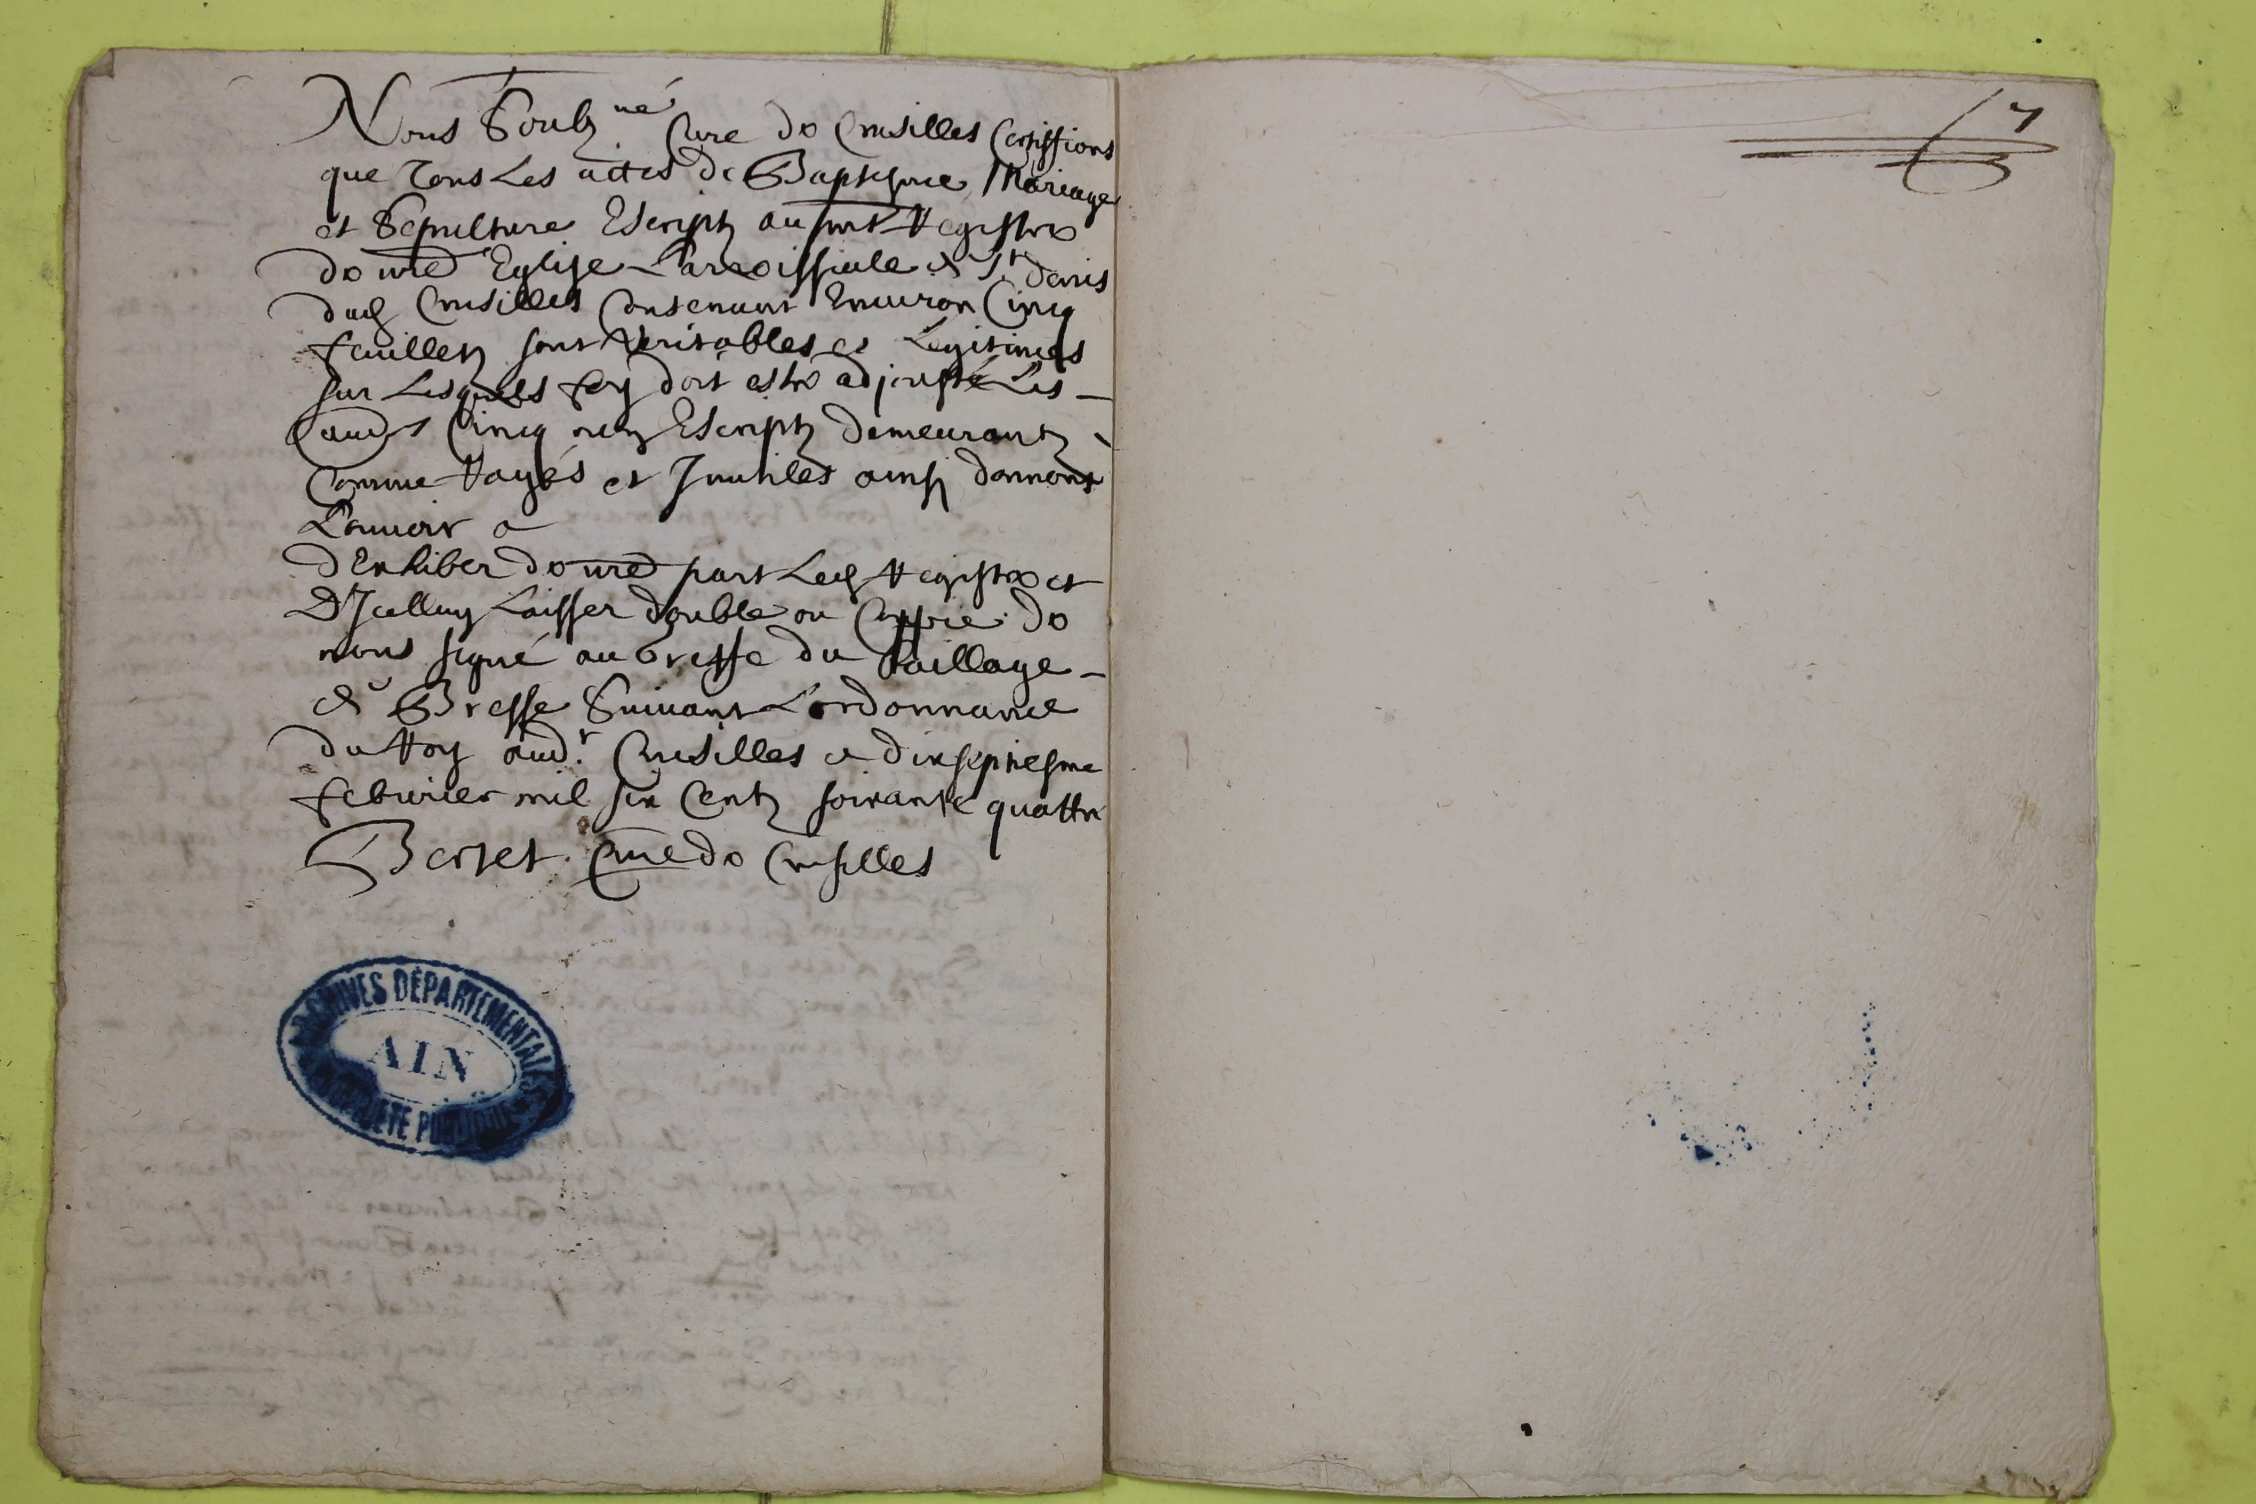 Nous Soubz.né Cure de Crusilles Certiffions
que Tous Les actes de Baptesme, Mariage
et Sepulture Escriptz au pnt Registre
de nre Eglise Parroissiale de St denis
dud Crusilles Contenant Environ Cinq
feuilletz sont veritables et Legitimes
sur Lesquels foy doit estre adjousté Les
Cinq Escriptz demeurantz
Comme Rayés et Inutiles ainsy donnons
Pouvoir a
d'Exhiber de nre part Led Registre et
D'Icelluy Laisser double ou Coppie de
nous signé au Greffe du Baillage
de Bresse Suivant L'ordonnance
du Roy aud. Crusilles ce dixseptiesme
febvrier mil six Centz soixante quattre
Curé de Crusilles
7
ARCHIVES DÉPARTEMENTALES
AIN
PROPRIÉTÉ PUBLIQUE